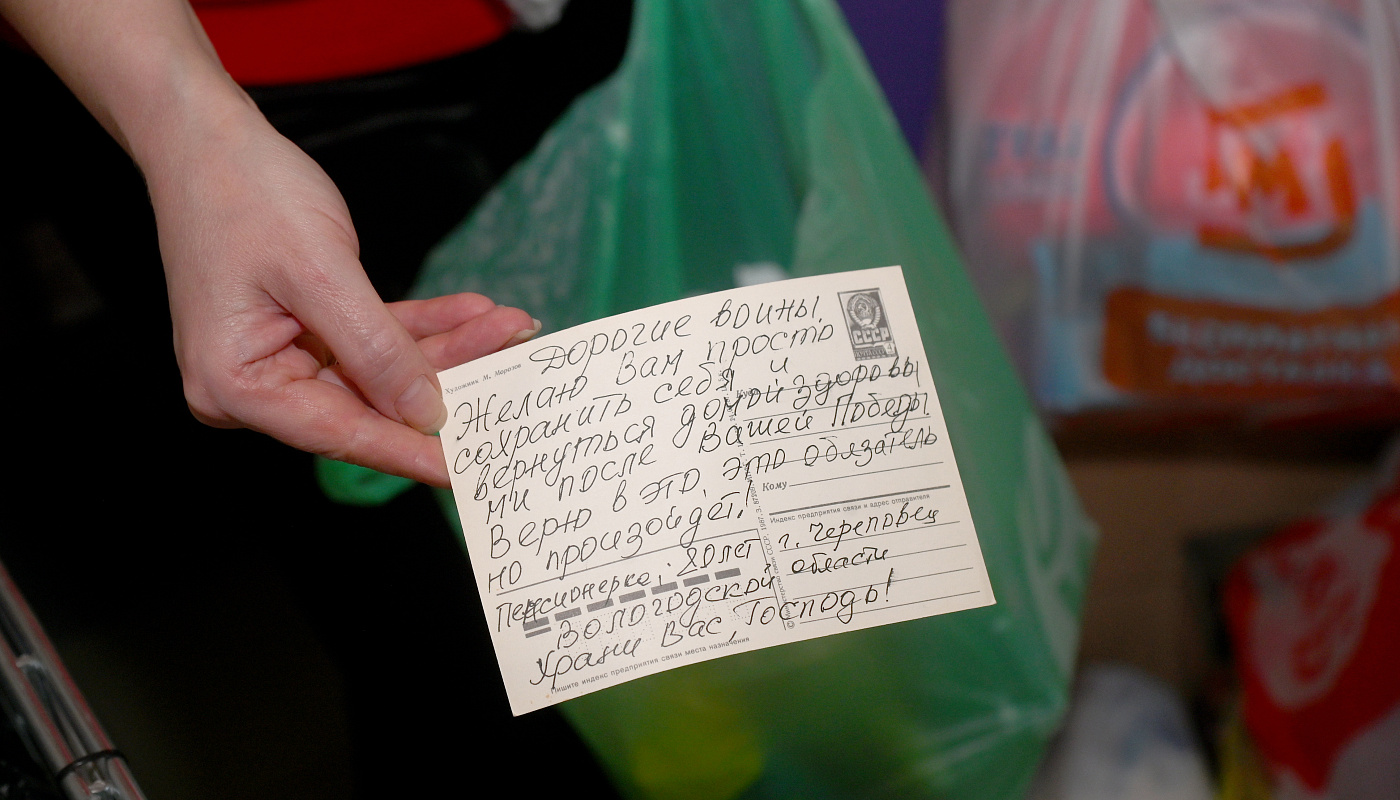 Художник М. Морозов
Дорогие воины,
Желаю Вам просто
сохранить себя и
вернуться домой здоровы
ми после Вашей Победы.
Верю в это, это обязатель
но произойдёт!
Пенсионерка, 80 лет
г. Череповец
Вологодской области
Храни Вас, Господь!
СССР
Куда
Кому
Индекс предприятия связи и адрес отправителя
Пишите индекс предприятия связи места назначения